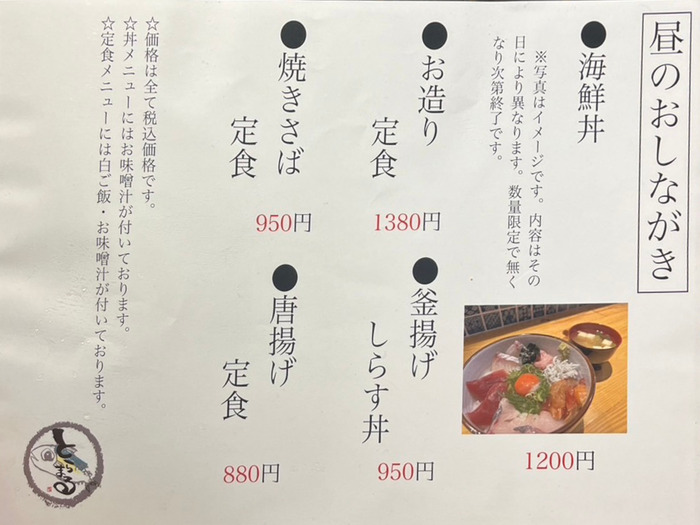 昼のおしながき
●海鮮丼
※写真はイメージです。内容はその
日により異なります。数量限定で無く
なり次第終了です。
1200円
●お造り
定食
1380円
●釜揚げ
しらす丼
950円
●焼きさば
定食
950円
●唐揚げ
定食
880円
☆価格は全て税込価格です。
☆丼メニューにはお味噌汁が付いております。
☆定食メニューには白ご飯・お味噌汁が付いております。